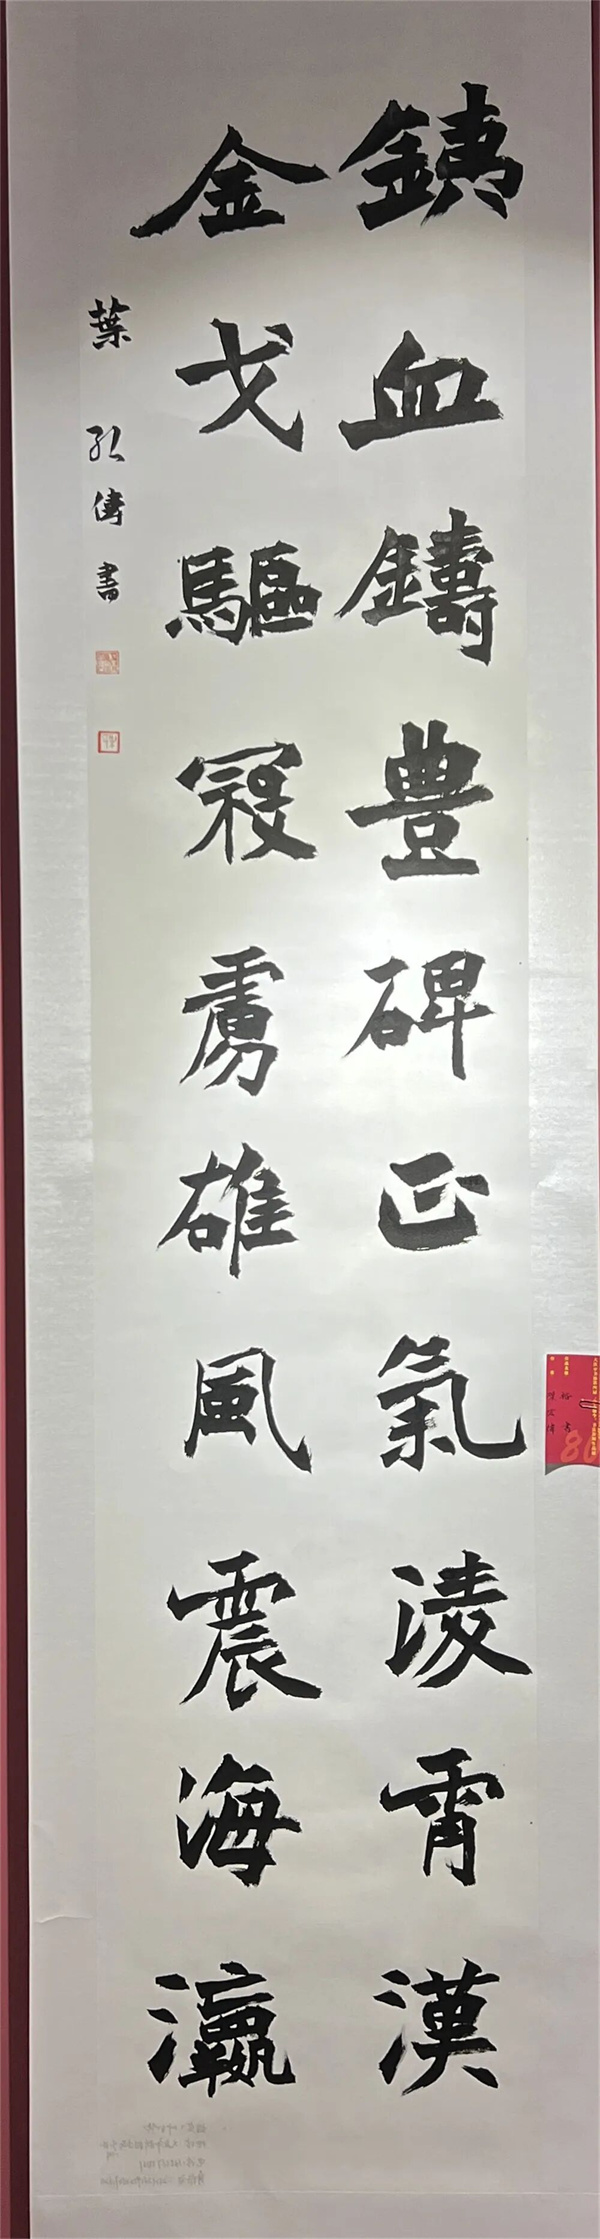 鐵血鑄豊碑正氣淩霄漢
金戈驅寇虜雄風震海瀛
葉孔傳書